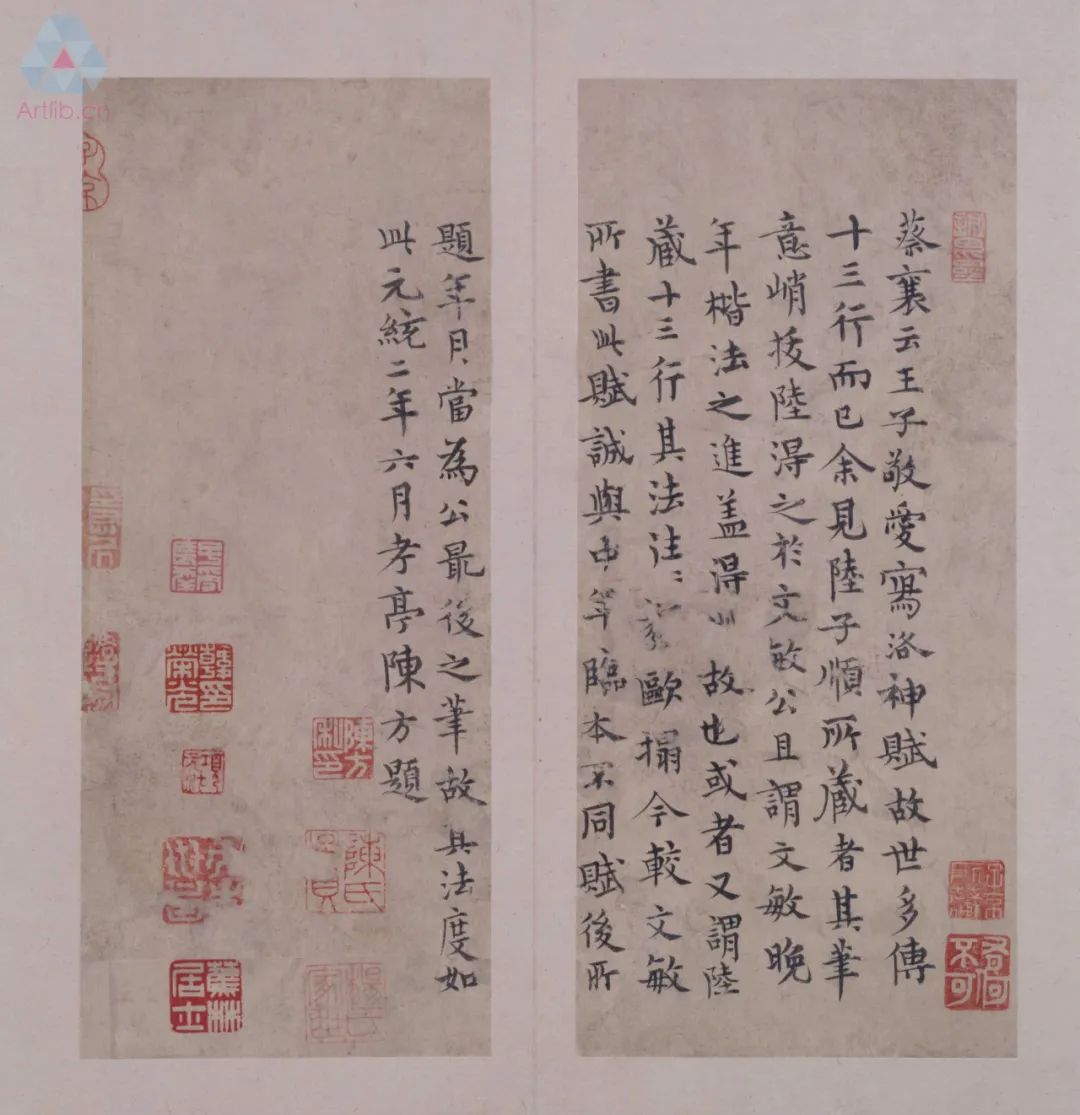 蔡襄云王子敬愛寫洛神賦故世多傳
十三行而已余見陸子順所蔵者其筆
意峭拔陸淂之於文敏公且謂文敏晚
年楷法之進盖淂此故也或者又謂陸
蔵十三行其法注〻歐搨今較文敏
所書此賦誠與中年臨本不同賦後所
題年月當為公最後之筆故其法度如
此元統二年六月孝亭陳方題
陳方
陳氏
蕉林居士
Artlib.cn